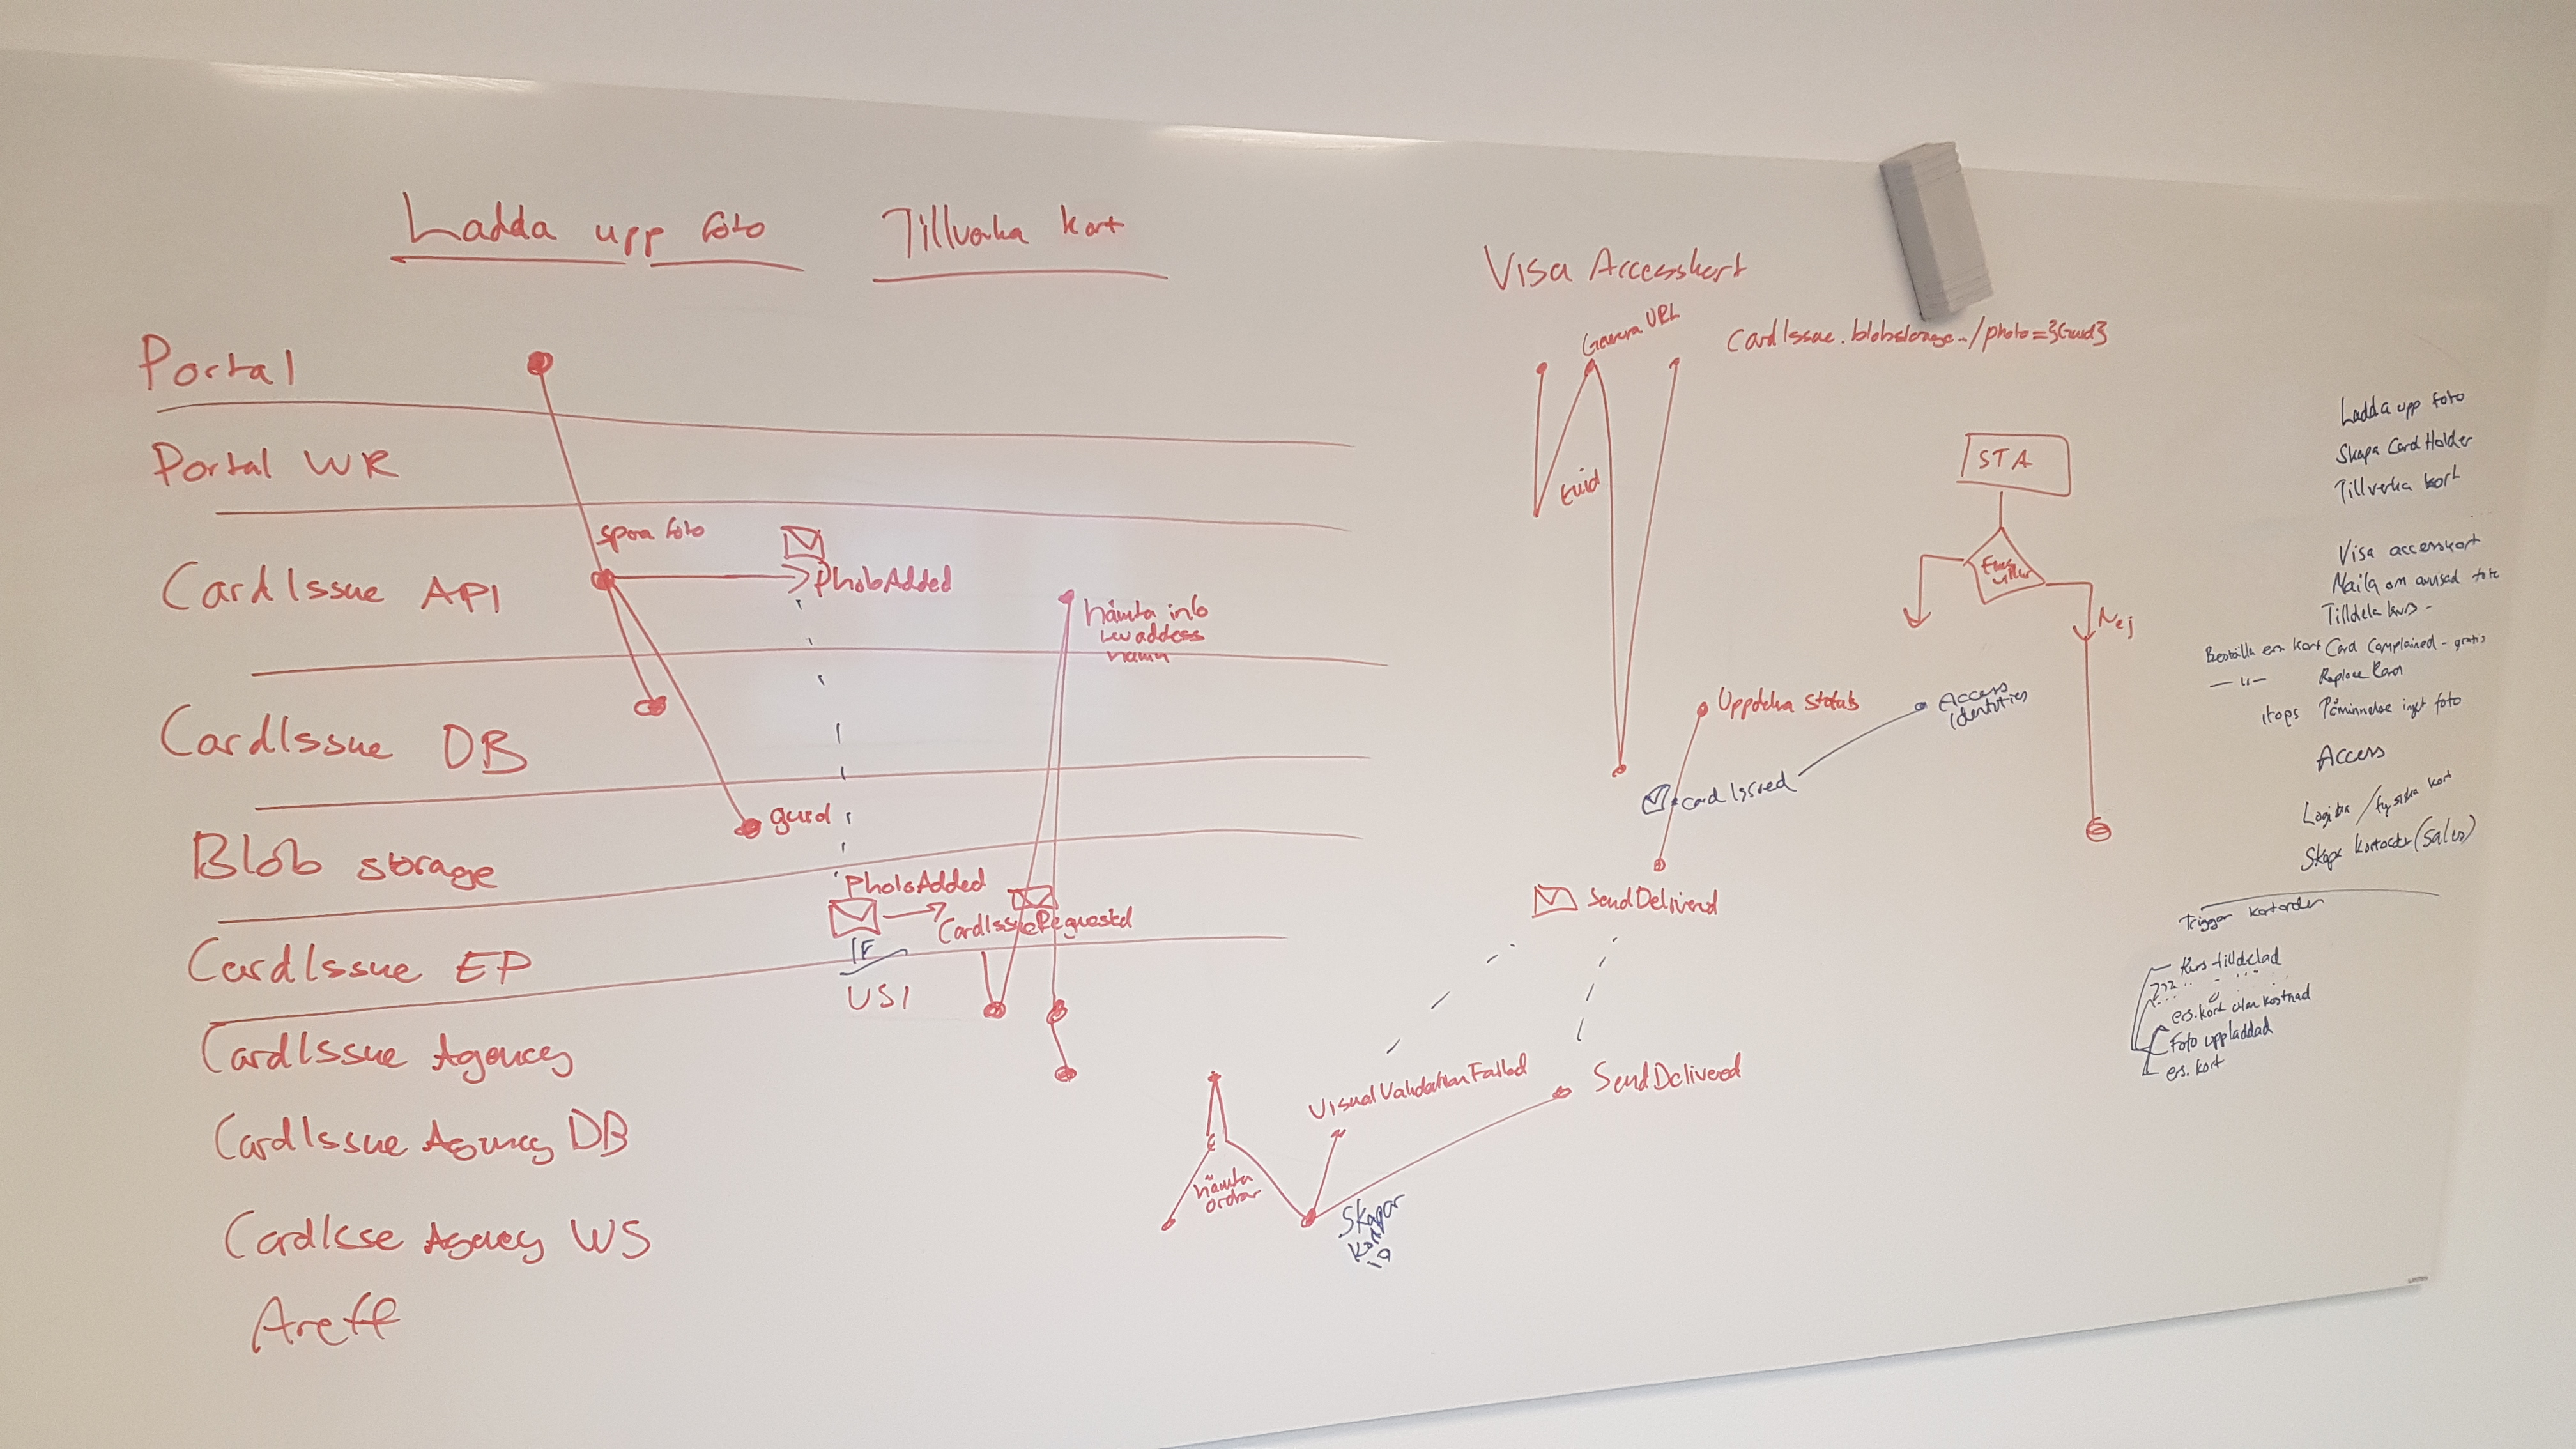 Ladda upp foto
Tillverka kort
Visa Accesskort
Portal
Portal WR
CardIssue API
CardIssue DB
Blob storage
CardIssue EP
CardIssue Agency
CardIssue Agency DB
CardIsse Agency WS
Areff
spara foto
PhotoAdded
guid
hämta info
lev address
namn
PhotoAdded
CardIssueRequested
IF
USI
hämta
ordrar
VisualValidationFailed
SendDelivered
Skapar
kort
SendDelivered
Uppdatera status
cardIssued
Access
identities
URL
guid
CardIssue.blobstorage../photo={Guid}
STA
Nej
Ladda upp foto
Skapa CardHolder
Tillverka kort
Visa accesskort
Maila om avvisad foto
Tilldela kurs -
Beställa ers. kort Card Complained - gratis
— " — Replace Card
Påminnelse inget foto
Access
Logiska / fysiska kort
Skapa kortorder (Sales)
Trigger kortorder
Kurs tilldelad
???
ers. kort utan kostnad
Foto uppladdad
ers. kort